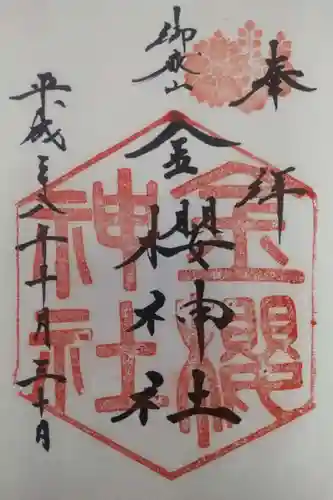 奉拝
御岳山
金櫻神社
金櫻
神社
平成二八年十月三十日